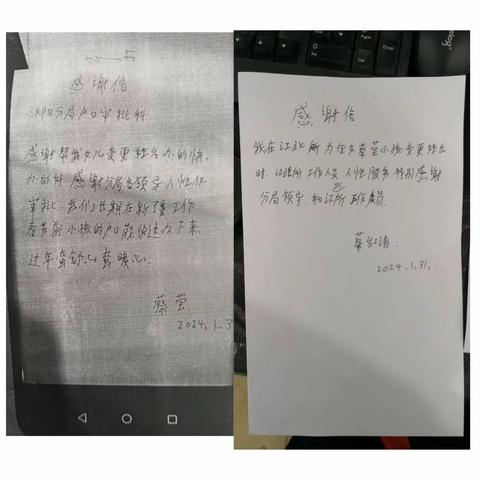 感谢信
汉阳分局户口审批科
感谢帮我女儿变更姓名办的快,
办的好,感谢分局各领导人性化
审批,我们长期在新疆工作
春节前小孩的户口能快速办下来,
过年蛮舒心蛮暖心。
蔡莹
2024.1.3
感谢信
我在江北所为侄女蔡莹小孩变更姓名
时,江北所工作人员人性服务特别感谢
分局领导,和江所工作人员
蔡红清.
2024.1.31.